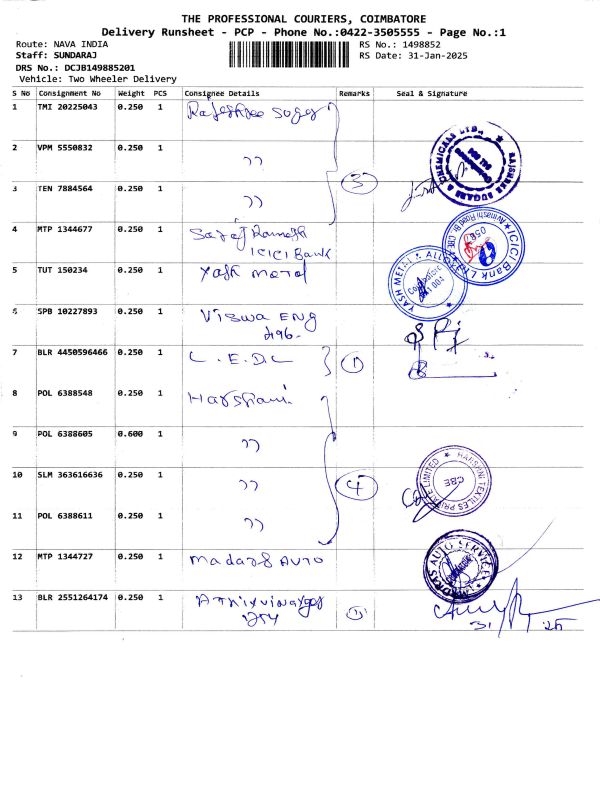 THE PROFESSIONAL COURIERS, COIMBATORE
Delivery Runsheet - PCP - Phone No.:0422-3505555 - Page No.:1
Route: NAVA INDIA
Staff: SUNDARAJ
DRS No.: DCJB149885201
Vehicle: Two Wheeler Delivery
RS No.: 1498852
RS Date: 31-Jan-2025
S No Consignment No Weight PCS Consignee Details Remarks Seal & Signature
1 TMI 20225043 0.250 1
2 VPM 5550832 0.250 1 ,,
3 TEN 7884564 0.250 1 ,, 3
RAJSHREE SUGARS & CHEMICALS LTD.
4 MTP 1344677 0.250 1
ICICI Bank
ICICI Bank Ltd
5 TUT 150234 0.250 1 Yash metal
YASH METAL ALLOYS
Coimbatore
6 SPB 10227893 0.250 1 Viswa ENG
496-
7 BLR 4450596466 0.250 1 C.E.D.C 1
8 POL 6388548 0.250 1 Harshani
9 POL 6388605 0.600 1 ,,
10 SLM 363616636 0.250 1 ,, 4
HARSHNI TEXTILES PRIVATE LIMITED
CBE
11 POL 6388611 0.250 1 ,,
12 MTP 1344727 0.250 1 Madras AUTO
MADRAS AUTO SERVICE
13 BLR 2551264174 0.250 1
31 25